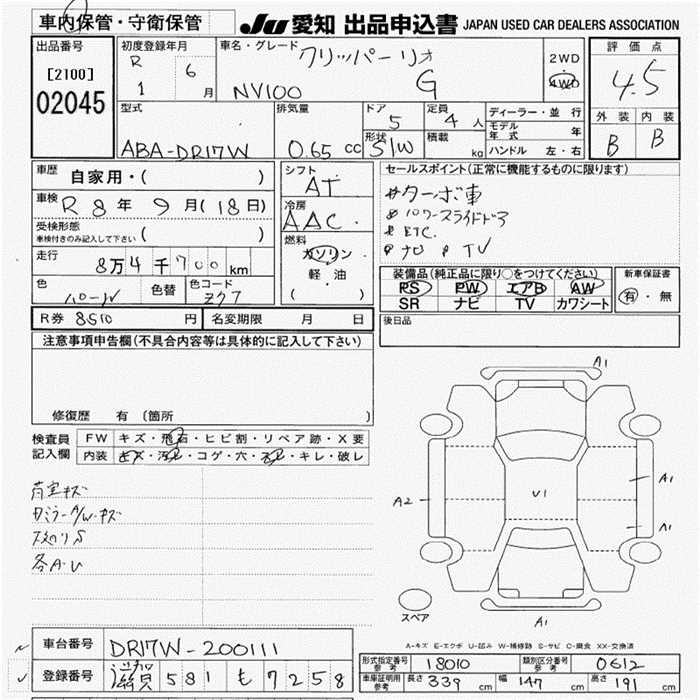 車内保管・守衛保管
JU 愛知 出品申込書 JAPAN USED CAR DEALERS ASSOCIATION
出品番号
[2100]
02045
初度登録年月
R 1 6月
車名・グレード
クリッパーリオ
NV100 G
2WD
4WD
評価点
4.5
外装 内装
B B
型式
ABA-DR17W
排気量
0.65 cc
ドア
5
定員
4人
形状
S/W
積載
kg
ディーラー・並行
モデル年式 年
ハンドル 左・右
車歴
自家用・( )
車検
R 8年 9月(18日)
受検形態
車検付きのみ記入して下さい ( )
走行
8万4千700km
色
パール
色替
色コード
シフト
AT
冷房
AAC
燃料
ガソリン
軽油
( )
セールスポイント(正常に機能するものに限ります)
ターボ車
パワースライドドア
ETC
ナビ TV
装備品(純正品に限り○をつけてください)
PS PW エアB AW
SR ナビ TV カワシート
新車保証書
有・無
R券 8510 円
名変期限 月 日
後日品
注意事項申告欄(不具合内容等は具体的に記入して下さい)
修復歴 有 〔箇所 〕
検査員記入欄
FW キズ・飛石・ヒビ割・リペア跡・X要
内装 キズ・汚れ・コゲ・穴・スレ・キレ・破レ
荷室キズ
各A・U
A1
A2
U1
A1
A1
A1
スペア
A-キズ E-エクボ U-凹み W-補修跡 S-サビ C-腐食 XX-交換済
車台番号
DR17W-200111
登録番号
滋賀 581 も 7258
形式指定番号 参考 18010
類別区分番号 参考 0612
車庫証明用 参考 長さ 339 cm 幅 147 cm 高さ 191 cm